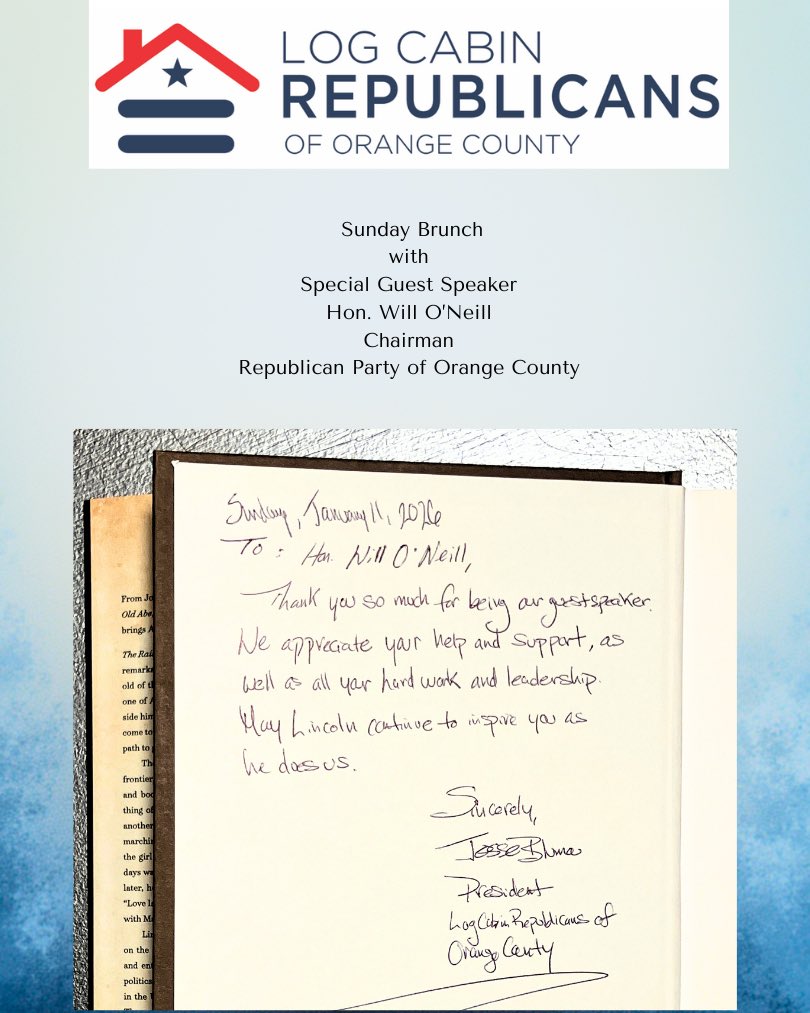 LOG CABIN
REPUBLICANS
OF ORANGE COUNTY
Sunday Brunch
with
Special Guest Speaker
Hon. Will O'Neill
Chairman
Republican Party of Orange County
Sunday, January 11, 2026
To: Hon. Will O'Neill,
Thank you so much for being our guest speaker.
We appreciate your help and support, as
well as all your hard work and leadership.
May Lincoln continue to inspire you as
he does us.
Sincerely,
Jesse Bluma
President
Log Cabin Republicans of
Orange County
From Jo
Old Abe,
brings A
The Rail
remark
old of t
one of A
side him
come to
path to
Th
frontier
and boo
thing of
another
marchi
the girl
days wa
later, h
"Love l
with Ma
Lin
on the
and ent
politics
in the